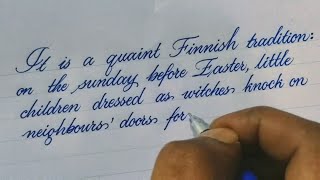 It is a quaint Finnish tradition:
on the sunday before Easter, little
children dressed as witches knock on
neighbours' doors for